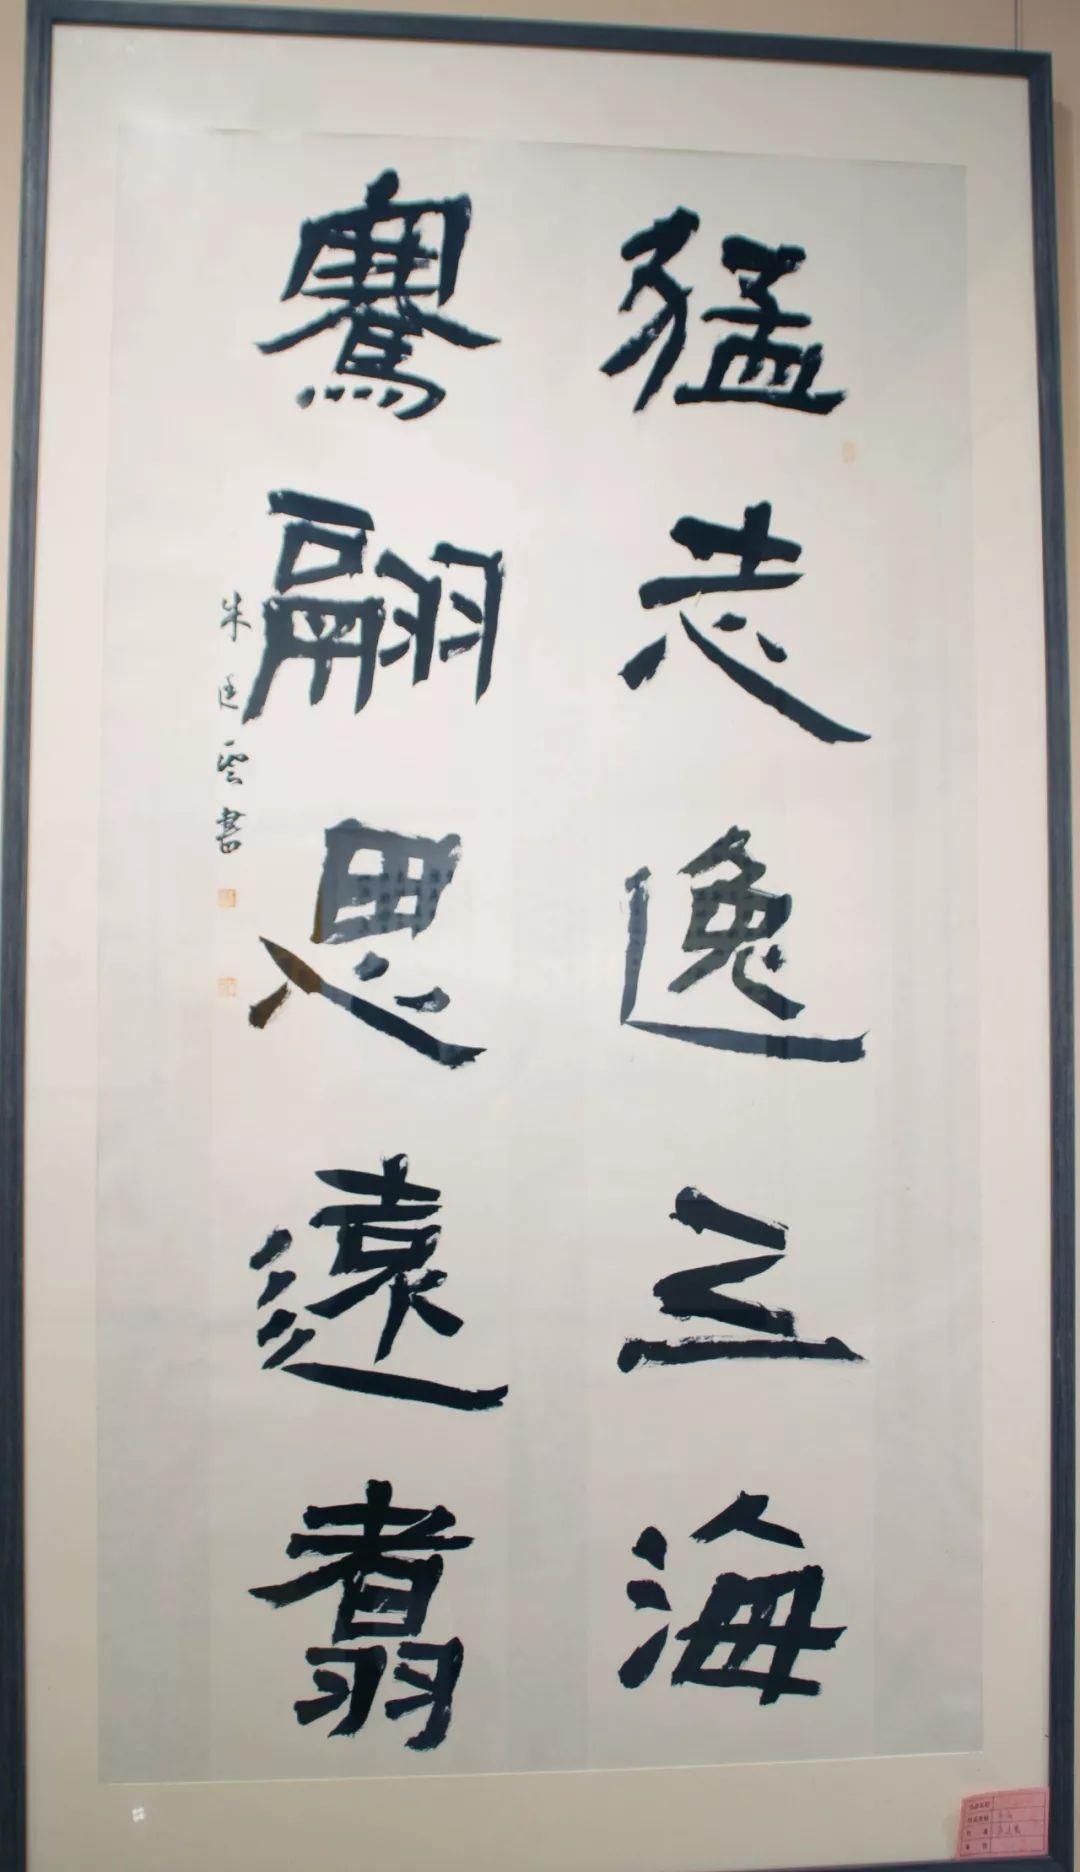 猛志逸四海
騫翮思遠翥
朱廷雲書